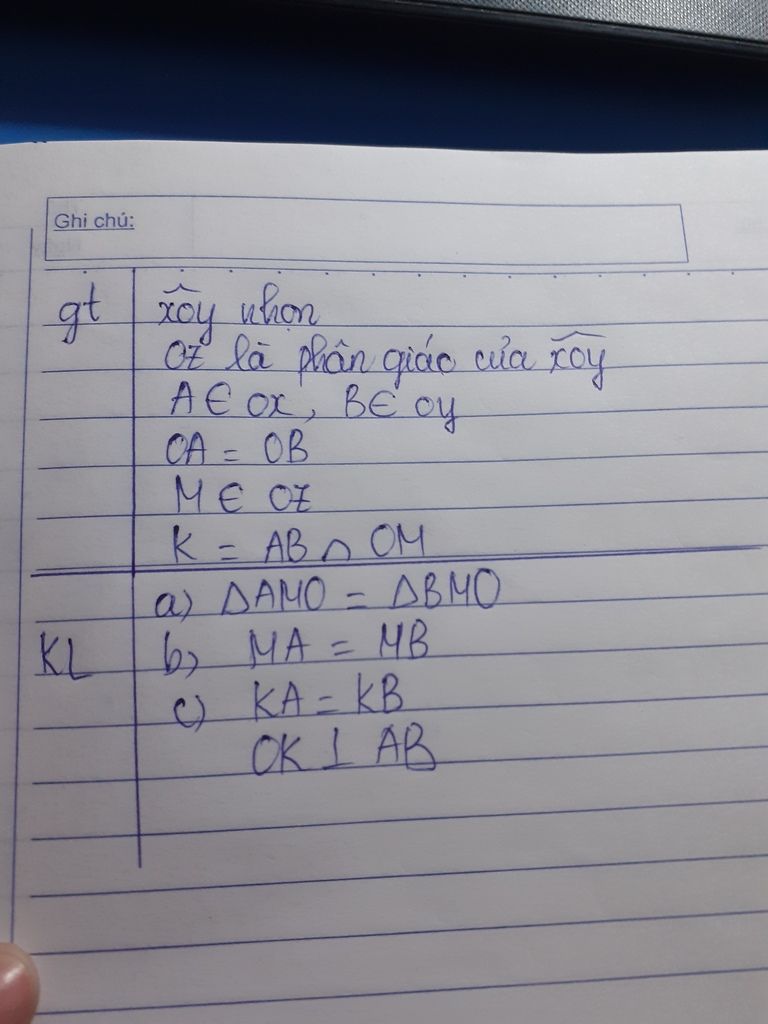 Ghi chú:
gt xOy nhọn
Oz là phân giác của xOy
A ∈ Ox, B ∈ Oy
OA = OB
M ∈ Oz
K = AB ∩ OM
a) ΔAMO = ΔBMO
KL b) MA = MB
c) KA = KB
OK ⊥ AB